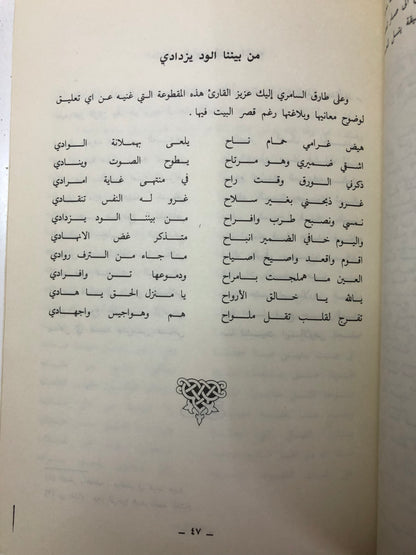 من بيننا الود يزدادي
وعلى طارق السامري إليك عزيز القارئ هذه المقطوعة التي غنيه عن اي تعليق
لوضوح معانيها وبلاغتها رغم قصر البيت فيها .
هيض غرامي حمام ناح يلعى بهملانة الوادي
اشقي ضميري وهو مرتاح يطوح الصوت وينادي
ذكرني الورق وقت راح في منتهى غاية امرادي
غرو ذبحني بغير سلاح غرو له النفس تنقادي
نمسي ونصبح طرب وافراح من بيننا الود يزدادي
واليوم خافي الضمير انباح متذكر غض الانهادي
اقوم واقعد واصيح اصياح ما جاء من الترف روادي
العين ما هملجت بامراح ودموعها تن وافرادي
يالله يا خالق الأرواح يا منزل الحق يا هادي
تفرج لقلب تقل ملواح هم وهواجيس واجهادي
– ٤٧ –